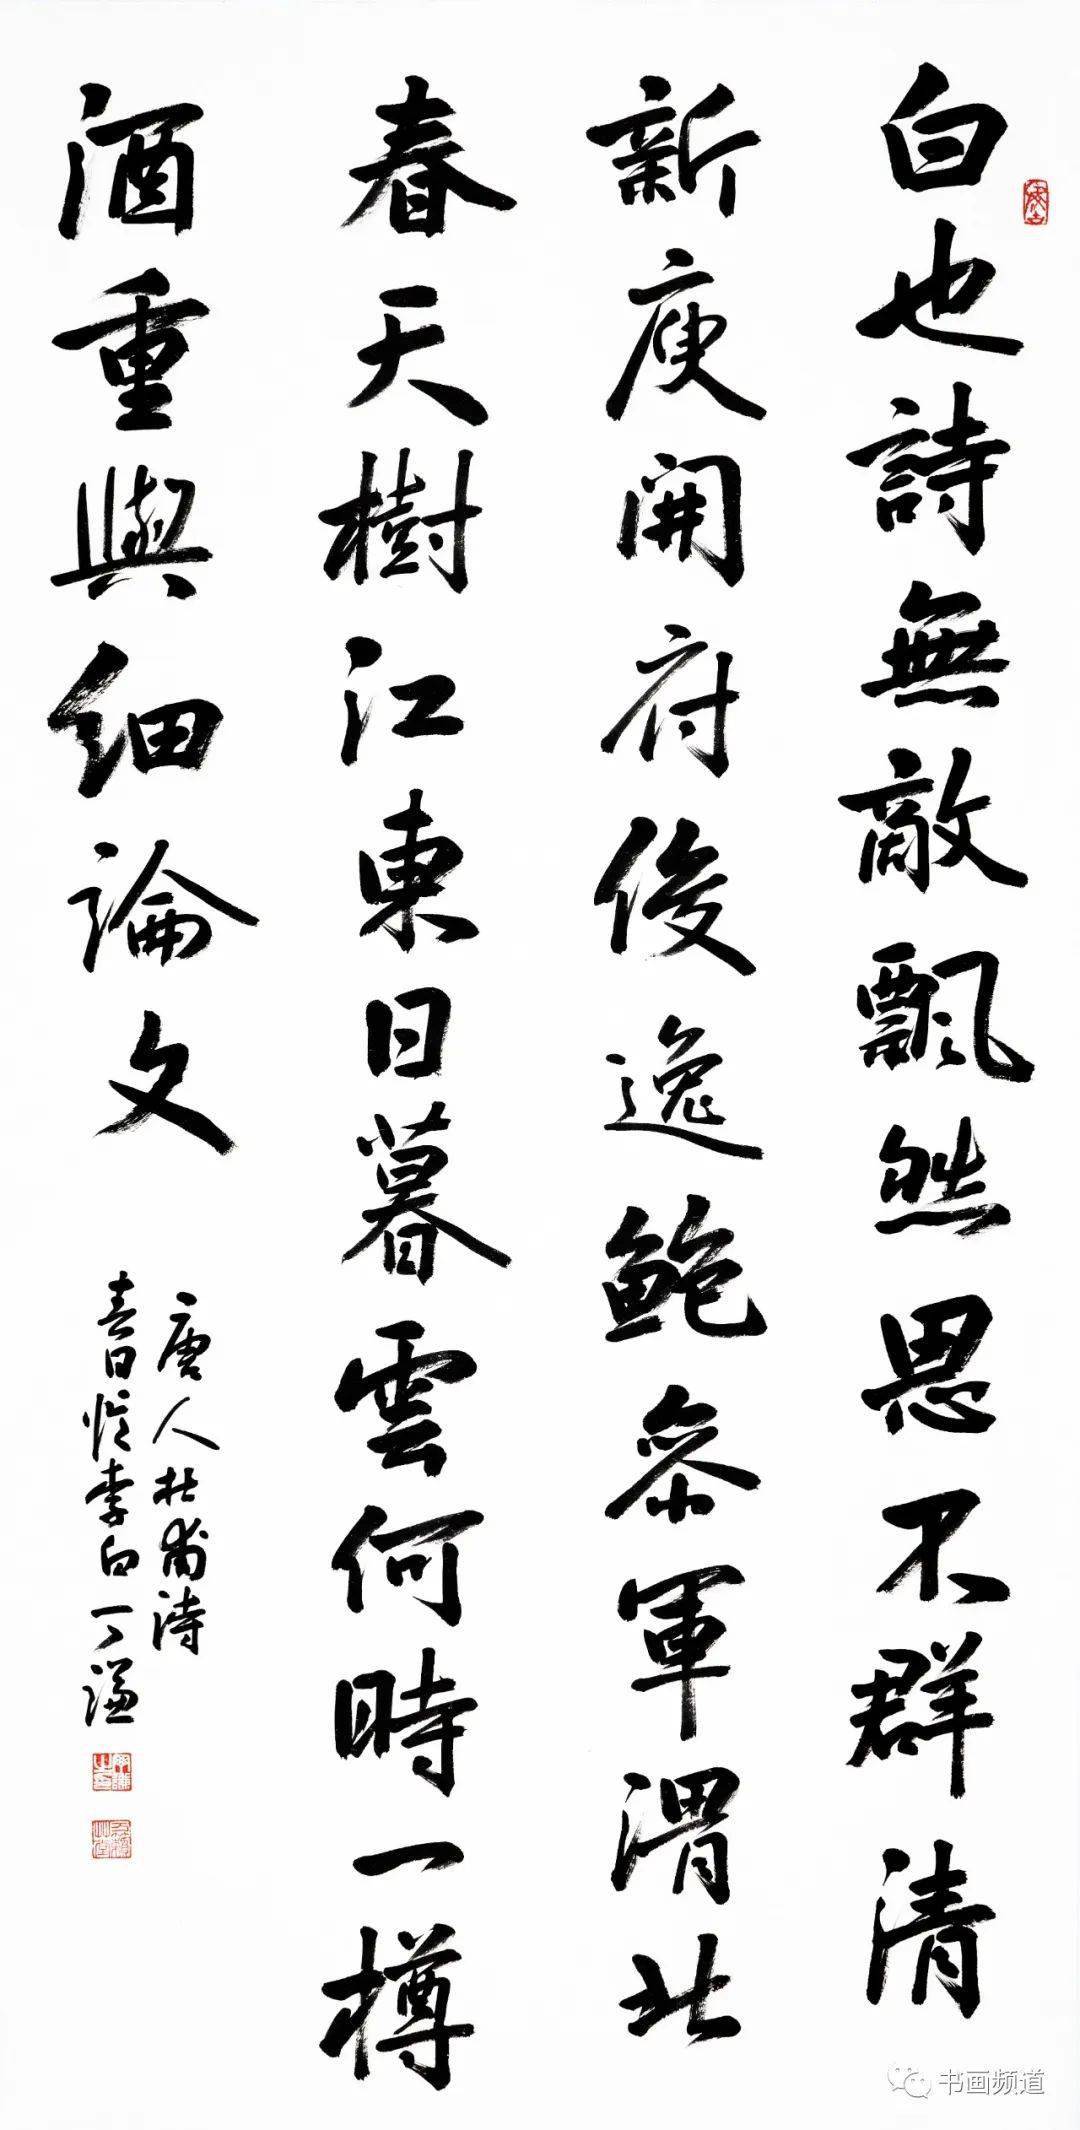 白也詩無敵飄然思不群清
新庾開府俊逸鮑參軍渭北
春天樹江東日暮雲何時一樽
酒重與細論文
唐人杜甫詩
春日憶李白丁謙
书画频道